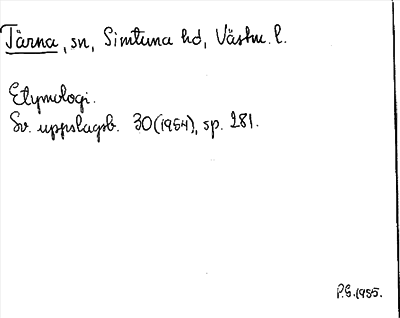 Tärna, sn, Simtuna hd, Västm. l.
Etymologi.
Sv. uppslagsb. 30(1954), sp. 281.
P.G. 1955.